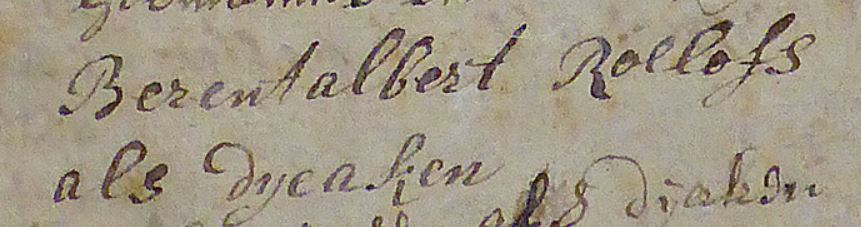 Berentalbert Roelofs
als dyeaken als diaken